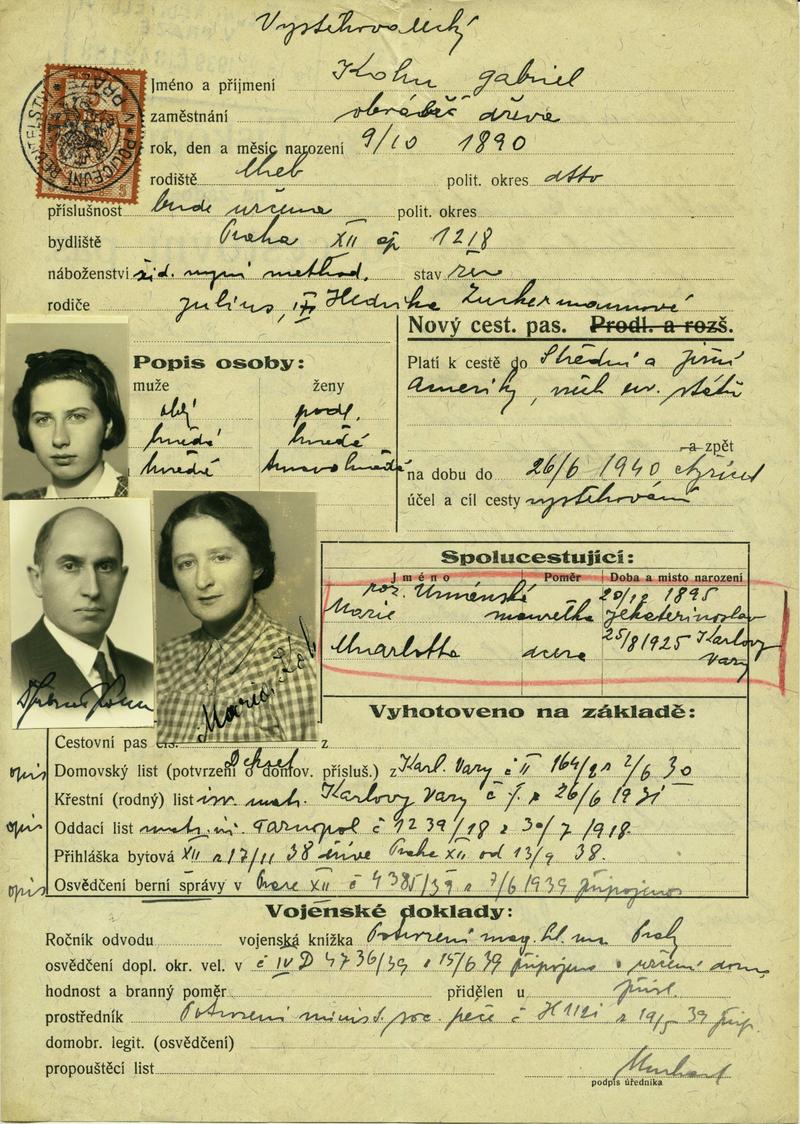 Vystěhovalecký
POLICEJNÍ ŘEDITELSTVÍ V PRAZE
Jméno a příjmení Kohn Gabriel
zaměstnání obráběč dřeva
rok, den a měsíc narození 9/10 1890
rodiště Cheb polit. okres dtto
příslušnost bude určena polit. okres
bydliště Praha XII čp 1218
náboženství žid. nyní method. stav žen
rodiče Julius, Hedvika Zuckermannové
Nový cest. pas. Prodl. a rozš.
Popis osoby:
Platí k cestě do Střední a jižní
muže ženy
Ameriky, všech ev. států
obl. podl.
hnědé hnědé
a zpět
hnědé tmavohnědé
na dobu do 26/6 1940
účel a cíl cesty vystěhování
Spolucestující:
Jméno Poměr Doba a místo narození
roz. Urménská 20/12 1895
Marie manželka Jekaterinoslav
25/8 1925 Karlovy
Charlotta dcera Vary
Vyhotoveno na základě:
Cestovní pas čís. z
Domovský list (potvrzení o domov. přísluš.) z Karl. Vary č II 164/2 2/6 30
opis
Křestní (rodný) list isr. matr. Karlovy Vary č 26/6 1931
opis Oddací list matr. Tarnopol č 1239/18 z 30/7 1918.
Přihláška bytová XII z 17/11 38 dříve Praha XII od 13/9 38.
opis Osvědčení berní správy v Praze XII č 4385/39 z 7/6 1939 připojeno
Vojenské doklady:
Ročník odvodu vojenská knížka Potvrzení mag. hl. m. Prahy
osvědčení dopl. okr. vel. v č IV D 4736/39 z 15/6 39 připojeno o určení dom.
hodnost a branný poměr přidělen u přísl.
prostředník Potvrzení minist. soc. péče č H 1121 z 19/5 39 přip.
domobr. legit. (osvědčení)
propouštěcí list
podpis úředníka